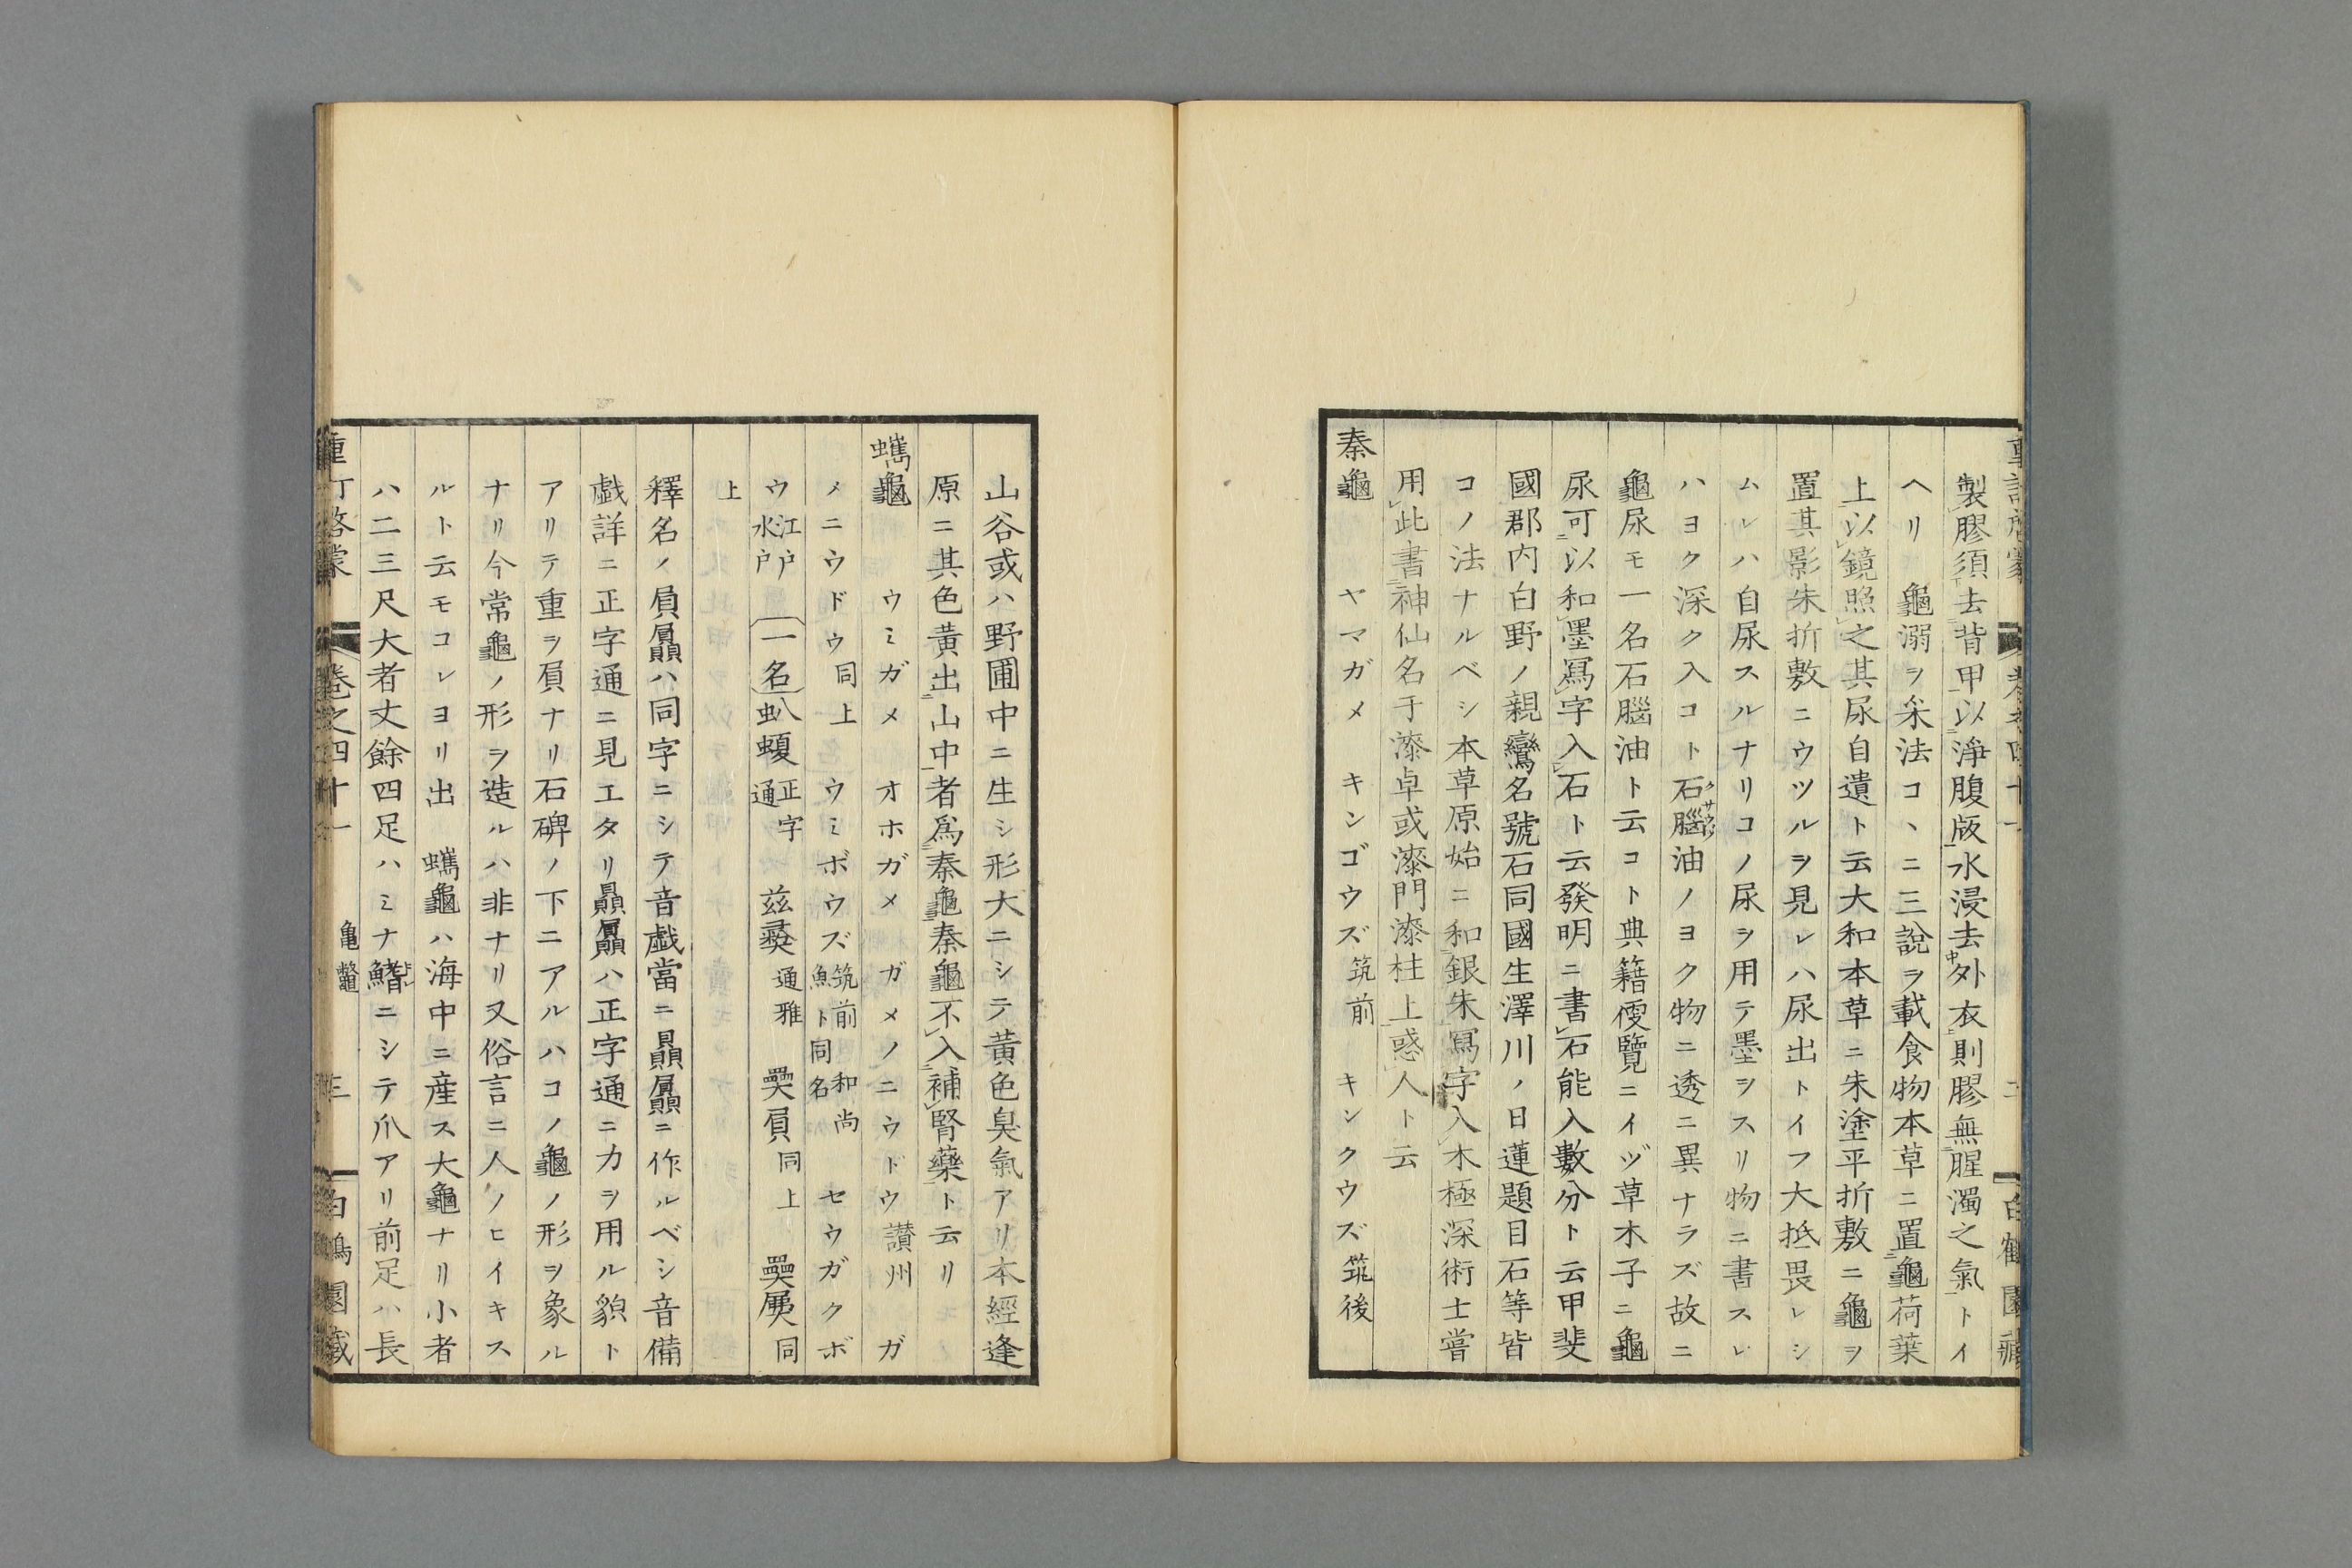 製膠須去背甲以淨腹版水浸去中外衣則膠無腥濁之氣トイ
ヘリ 龜溺ヲ采法コヽニ三説ヲ載食物本草ニ置龜荷葉
上以鏡照之其尿自遺ト云大和本草ニ朱塗平折敷ニ龜ヲ
置其影朱折敷ニウツルヲ見レハ尿出トイフ大抵畏レシ
ムレハ自尿スルナリコノ尿ヲ用テ墨ヲスリ物ニ書スレ
ハヨク深ク入コト石腦油ノヨク物ニ透ニ異ナラズ故ニ
龜尿モ一名石腦油ト云コト典籍便覽ニイヅ草木子ニ龜
尿可以和墨寫字入石ト云發明ニ書石能入數分ト云甲斐
國郡内白野ノ親鸞名號石同國生澤川ノ日蓮題目石等皆
コノ法ナルベシ本草原始ニ和銀朱寫字入木極深術士嘗
用此書神仙名于漆卓或漆門漆柱上惑人ト云
秦龜 ヤマガメ キンゴウズ筑前 キンクウズ筑後
山谷或ハ野圃中ニ生シ形大ニシテ黄色臭氣アリ本經逢
原ニ其色黄出山中者爲秦龜秦龜不入補腎藥ト云リ
蠵龜 ウミガメ オホガメ ガメノニウドウ讃州 ガ
メニウドウ同上 ウミボウズ筑前魚ト同名 和尚 セウガクボ
ウ江戸水戸 一名虯蝮正字通 玆夔通雅 奰屓同上 奰屭同
上
釋名ノ屓贔ハ同字ニシテ音戯當ニ贔屭ニ作ルベシ音備
戯詳ニ正字通ニ見エタリ贔屭ハ正字通ニ力ヲ用ル貌ト
アリテ重ヲ屓ナリ石碑ノ下ニアルハコノ龜ノ形ヲ象ル
ナリ今常龜ノ形ヲ造ルハ非ナリ又俗言ニ人ノヒイキス
ルト云モコレヨリ出 蠵龜ハ海中ニ産ス大龜ナリ小者
ハ二三尺大者丈餘四足ハミナ鰭ニシテ爪アリ前足ハ長
重訂啓蒙 卷之四十一 龜鼈 三